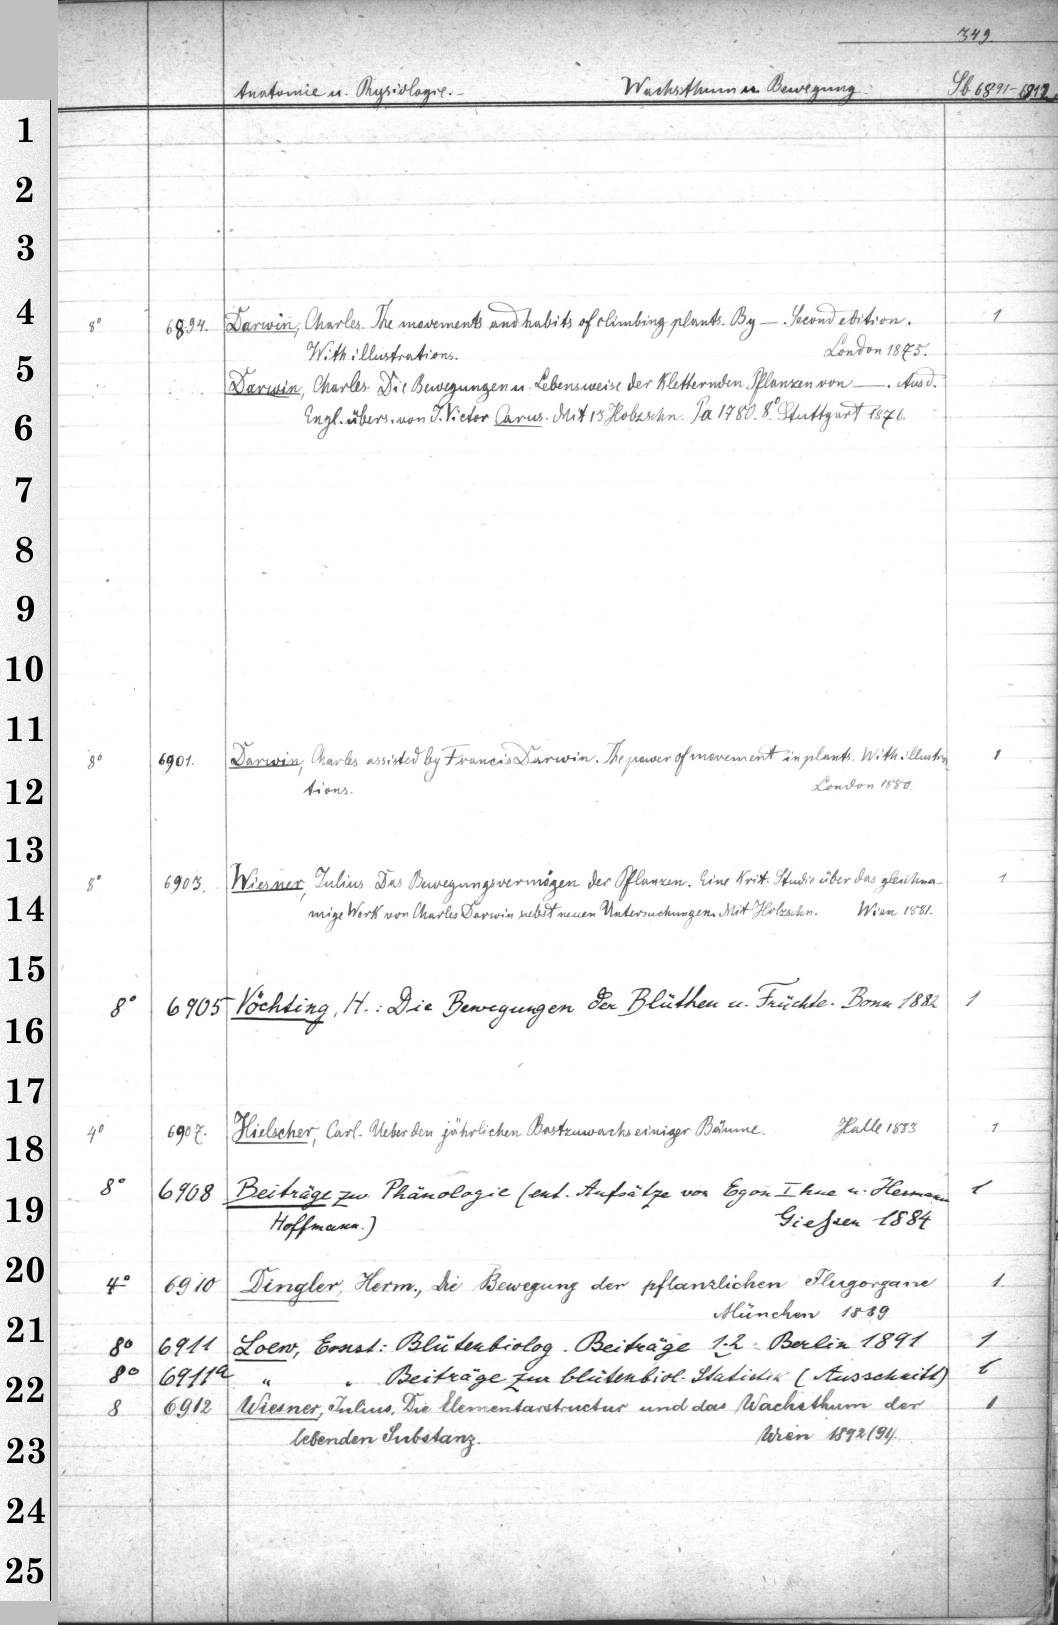 349
Anatomie u. Physiologie.- Wachsthum u. Bewegung. Sb 6891-6912
8° 6894. Darwin, Charles. The movements and habits of climbing plants. By —. Second edition. 1
With illustrations. London 1875.
Darwin, Charles. Die Bewegungen u. Lebensweise der Kletternden Pflanzen von —. Aus d.
Engl. übers. von J. Victor Carus. Mit 13 Holzschn. Pa 1780. 8° Stuttgart 1876.
8° 6901. Darwin, Charles assisted by Francis Darwin. The power of movement in plants. With illustra 1
tions. London 1880.
8° 6903. Wiesner, Julius. Das Bewegungsvermögen der Pflanzen. Eine Krit. Studie über das gleichna- 1
mige Werk von Charles Darwin nebst neuen Untersuchungen. Mit Holzschn. Wien 1881.
8° 6905 Vöchting, H.: Die Bewegungen der Blüthen u. Früchte. Bonn 1882 1
4° 6907. Hielscher, Carl. Ueber den jährlichen Bastzuwachs einiger Bäume. Halle 1883 1
8° 6908 Beiträge zur Phänologie (ent. Aufsätze von Egon Ihne u. Hermann 1
Hoffmann.) Giessen 1884
4° 6910 Dingler, Herm., die Bewegung der pflanzlichen Flugorgane 1
München 1889
8° 6911 Loew, Ernst: Blütenbiolog. Beiträge 1-2 Berlin 1891 1
8° 6911a " " Beiträge zur blütenbiol. Statistik (Ausschnitt) 1
8 6912 Wiesner, Julius. Die Elementarstructur und das Wachsthum der 1
lebenden Substanz. Wien 1892(94.
1
2
3
4
5
6
7
8
9
10
11
12
13
14
15
16
17
18
19
20
21
22
23
24
25